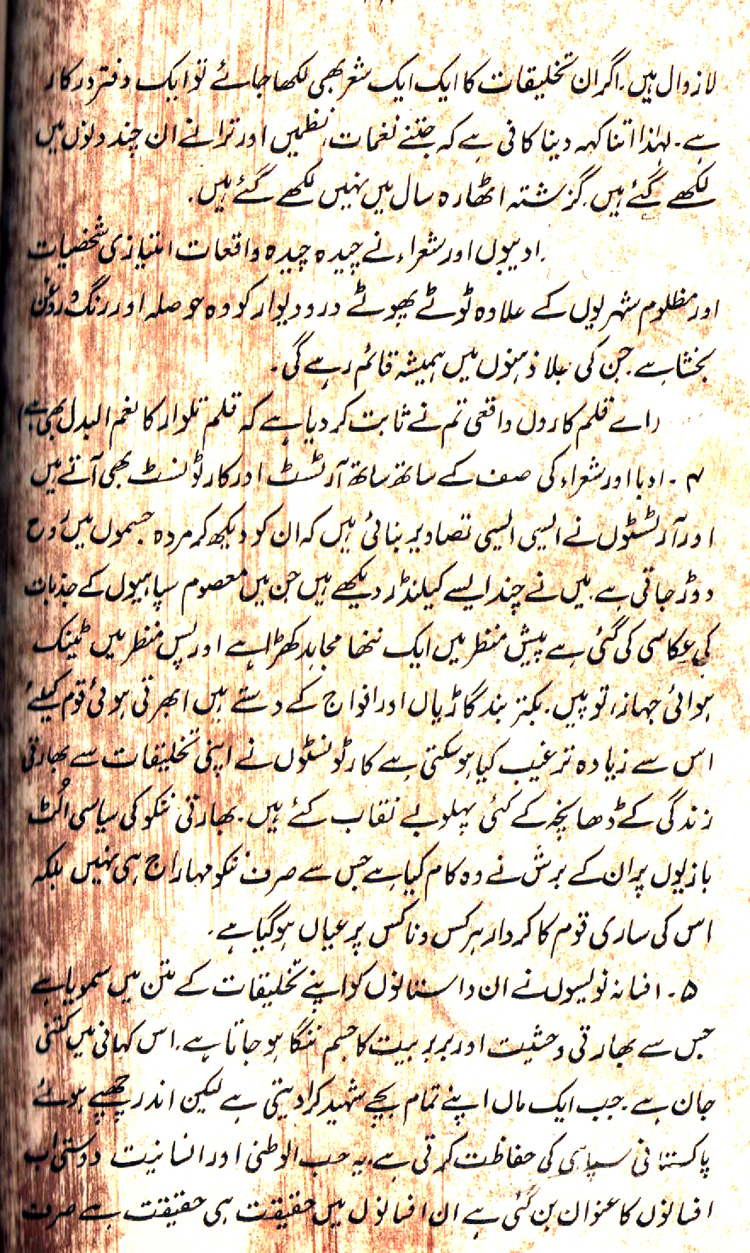 لازوال ہیں۔ اگر ان تخلیقات کا ایک ایک شعر بھی لکھا جائے تو ایک دفتر درکار
ہے۔ لہٰذا اتنا کہہ دینا کافی ہے کہ جتنے نغمات، نظمیں اور ترانے ان چند دنوں میں
لکھے گئے ہیں۔ گزشتہ اٹھارہ سال میں نہیں لکھے گئے ہیں۔
ادیبوں اور شعراء نے چیدہ چیدہ واقعات امتیازی شخصیات
اور مظلوم شہریوں کے علاوہ ٹوٹے پھوٹے در و دیوار کو وہ حوصلہ اور رنگ و روغن
بخشا ہے جن کی جلا ذہنوں میں ہمیشہ قائم رہے گی۔
(اے قلم کارون واقعی تم نے ثابت کر دیا ہے کہ قلم تلوار کا نعم البدل بھی ہے)
۴۔ ادبا اور شعراء کی صف کے ساتھ ساتھ آرٹسٹ اور کارٹونسٹ بھی آتے ہیں
اور آرٹسٹوں نے ایسی ایسی تصاویر بنائی ہیں کہ ان کو دیکھ کر مردہ جسموں میں روح
دوڑ جاتی ہے۔ میں نے چند ایسے کیلنڈر دیکھے ہیں جن میں معصوم سپاہیوں کے جذبات
کی عکاسی کی گئی ہے پیش منظر میں ایک ننھا مجاہد کھڑا ہے اور پس منظر میں ٹینک
ہوائی جہاز، توپیں۔ بکتر بند گاڑیاں اور افواج کے دستے ہیں ابھرتی ہوئی قوم کیلئے
اس سے زیادہ ترغیب کیا ہو سکتی ہے کارٹونسٹوں نے اپنی تخلیقات سے بھارتی
زندگی کے ڈھانچہ کے کئی پہلو بے نقاب کئے ہیں۔ بھارتی ننکو کی سیاسی اُلٹ
بازیوں پر ان کے برش نے وہ کام کیا ہے جس سے صرف ننکو مہاراج ہی نہیں بلکہ
اس کی ساری قوم کا کردار ہر کس و ناکس پر عیاں ہو گیا ہے۔
۵۔ افسانہ نویسوں نے ان داستانوں کو اپنے تخلیقات کے متن میں سمویا ہے
جس سے بھارتی وحشیت اور بربریت کا جسم ننگا ہو جاتا ہے۔ اس کہانی میں کتنی
جان ہے۔ جب ایک ماں اپنے تمام بچے شہید کرا دیتی ہے لیکن اندر چھپے ہوئے
پاکستانی سپاہی کی حفاظت کرتی ہے۔ یہ حب الوطنی اور انسانیت دوستی اب
افسانوں کا عنوان بن گئی ہے ان افسانوں میں حقیقت ہی حقیقت ہے صرف